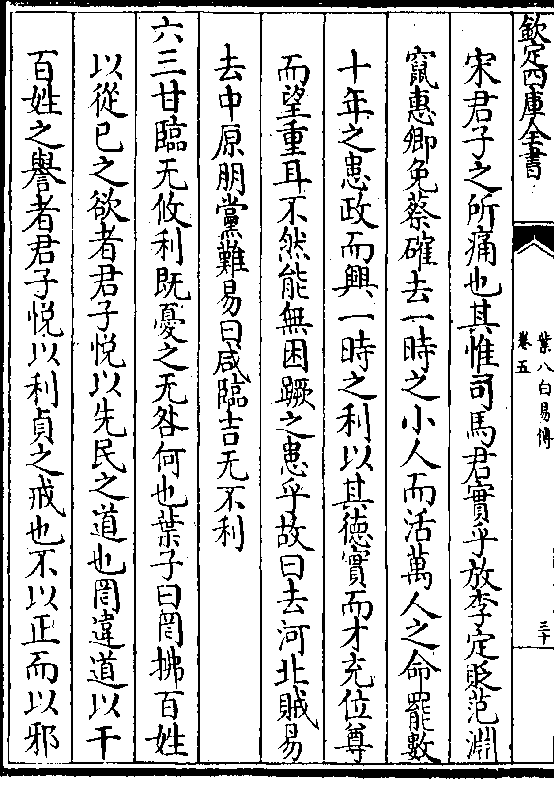 欽定四庫全書
葉八白易傳
卷五
三十
宋君子之所痛也其惟司馬君實乎放李定貶范淵
竄惠卿免蔡確去一時之小人而活萬人之命罷數
十年之患政而興一時之利以其德實而才充位尊
而望重耳不然能無困蹶之患乎故曰去河北賊易
去中原朋黨難易曰咸臨吉无不利
六三甘臨无攸利既憂之无咎何也葉子曰罔拂百姓
以從已之欲者君子悅以先民之道也罔違道以干
百姓之譽者君子悅以利貞之戒也不以正而以邪